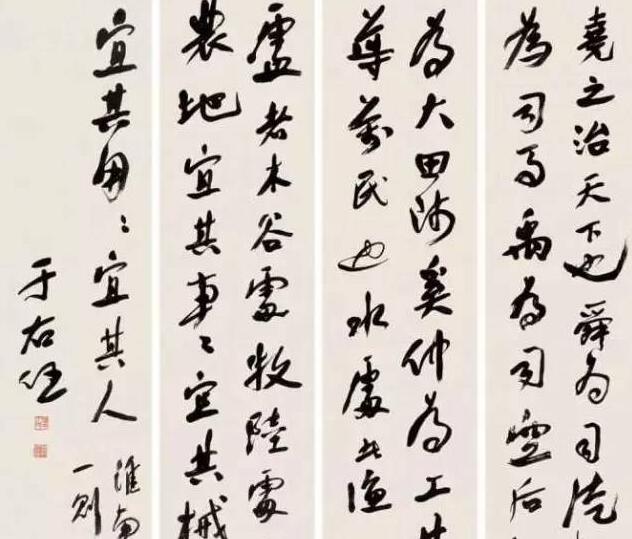 堯之治天下也舜为司徒
為司馬禹为司空后
為大田師奚仲為工
導萬民也水處者漁
處者木谷處牧陸處
農地宜其事〻宜其械
宜其用〻宜其人
淮南
一則
于右任